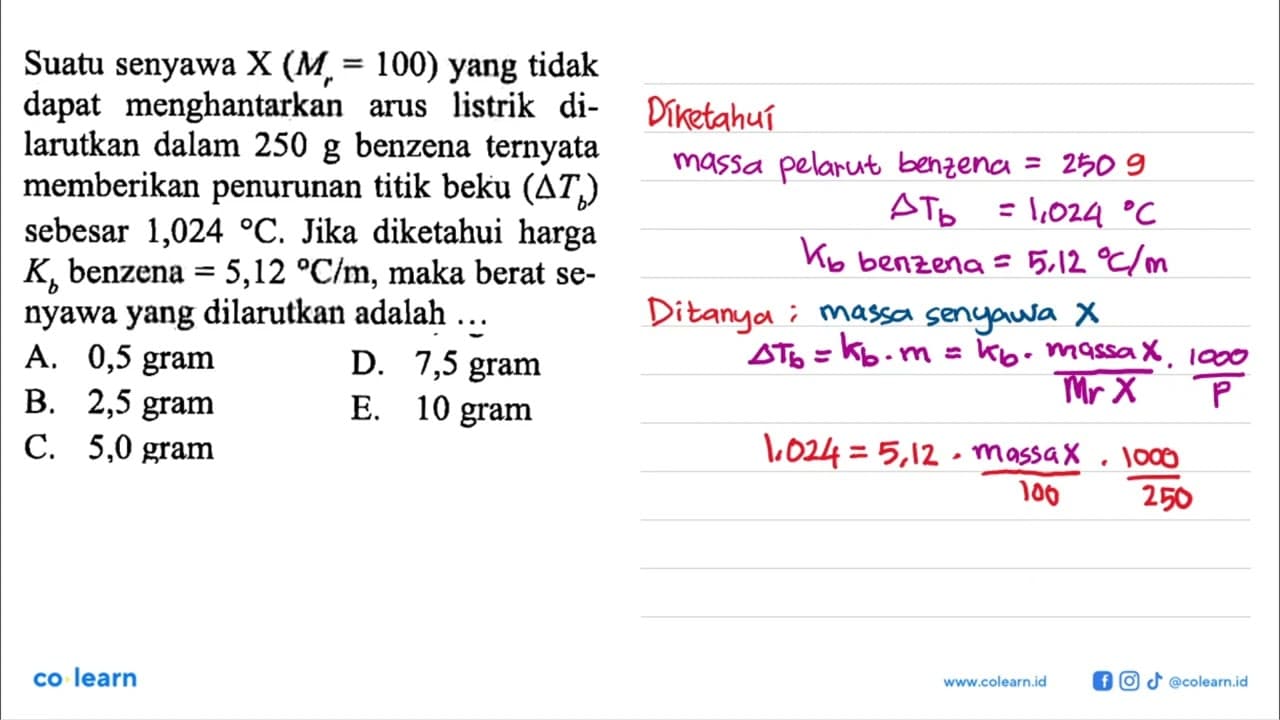 Suatu senyawa X (Mr = 100) yang tidak
dapat menghantarkan arus listrik di-
larutkan dalam 250 g benzena ternyata
memberikan penurunan titik beku (ΔTb)
sebesar 1,024 °C. Jika diketahui harga
Kb benzena = 5,12 °C/m, maka berat se-
nyawa yang dilarutkan adalah ...
A. 0,5 gram
B. 2,5 gram
C. 5,0 gram
D. 7,5 gram
E. 10 gram
Diketahui
massa pelarut benzena = 250 g
ΔTb = 1,024 °C
Kb benzena = 5,12 °C/m
Ditanya : massa senyawa X
ΔTb = Kb . m = Kb . massa X / Mr X . 1000 / P
1,024 = 5,12 . massa X / 100 . 1000 / 250
co learn
www.colearn.id
@colearn.id